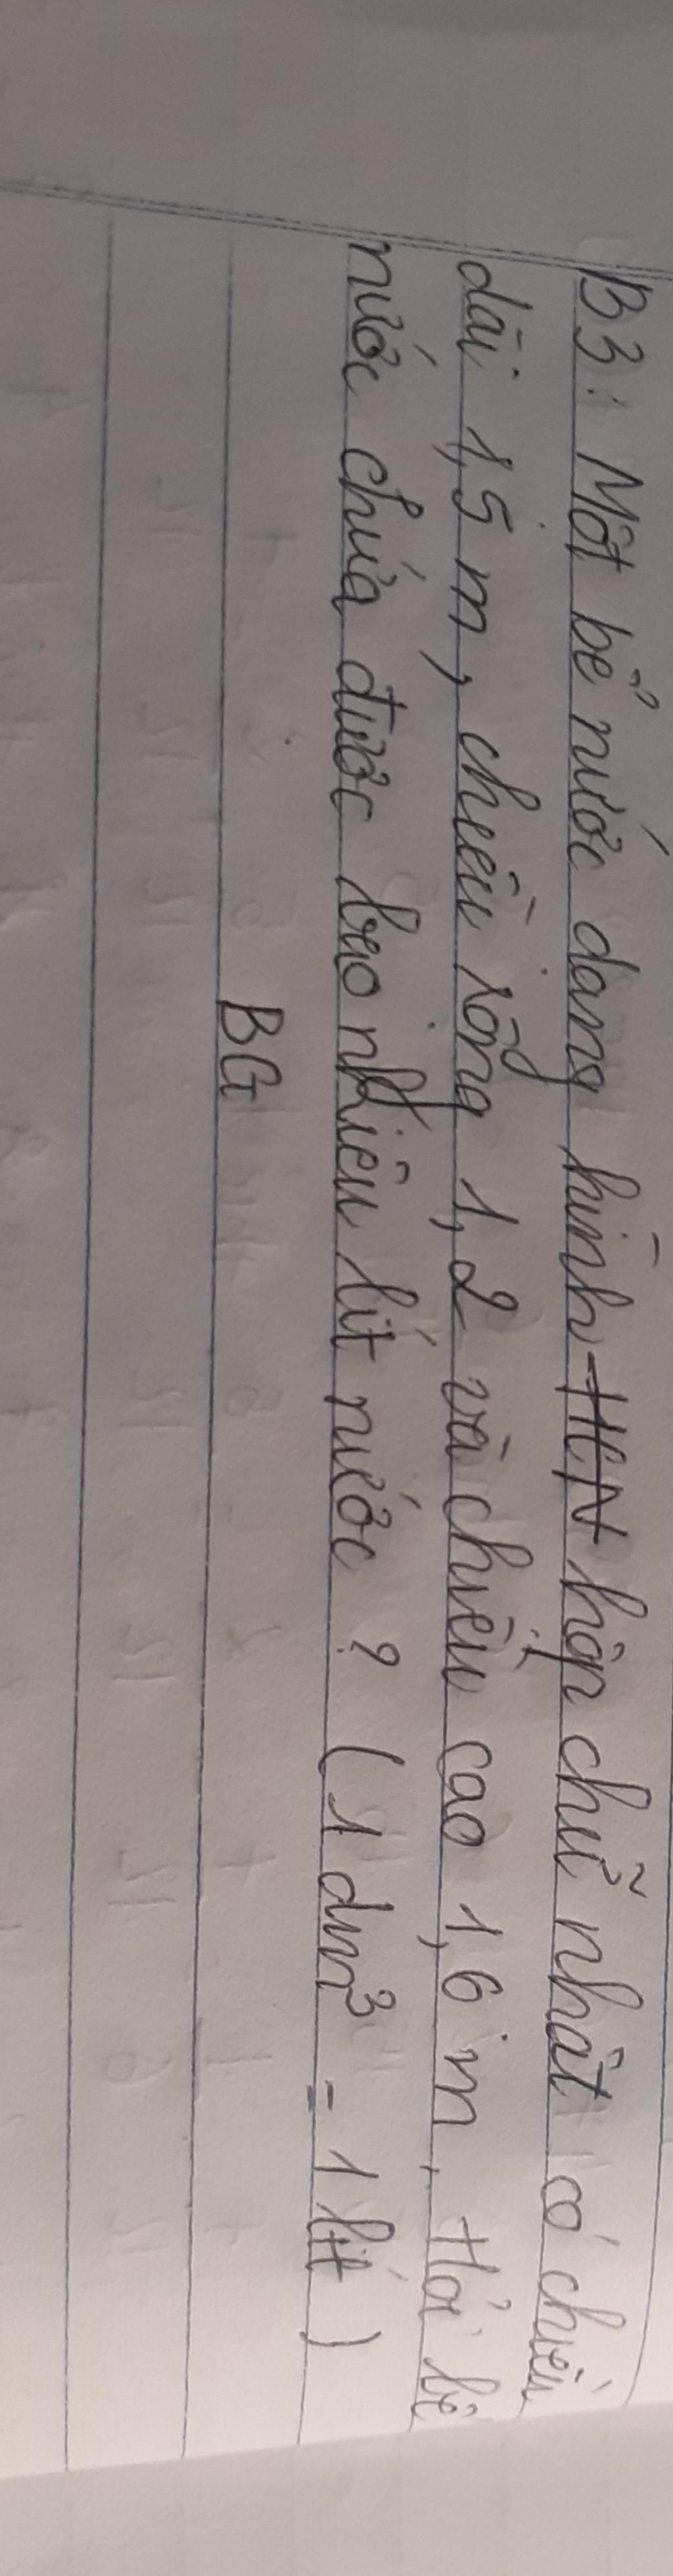 B3: Một bể nước dạng hình HCN hộp chữ nhật có chiều
dài 1,5 m, chiều rộng 1,2 và chiều cao 1,6 m. Hỏi bể
nước chứa được bao nhiêu lít nước? (1 dm³ = 1 lít)
BG